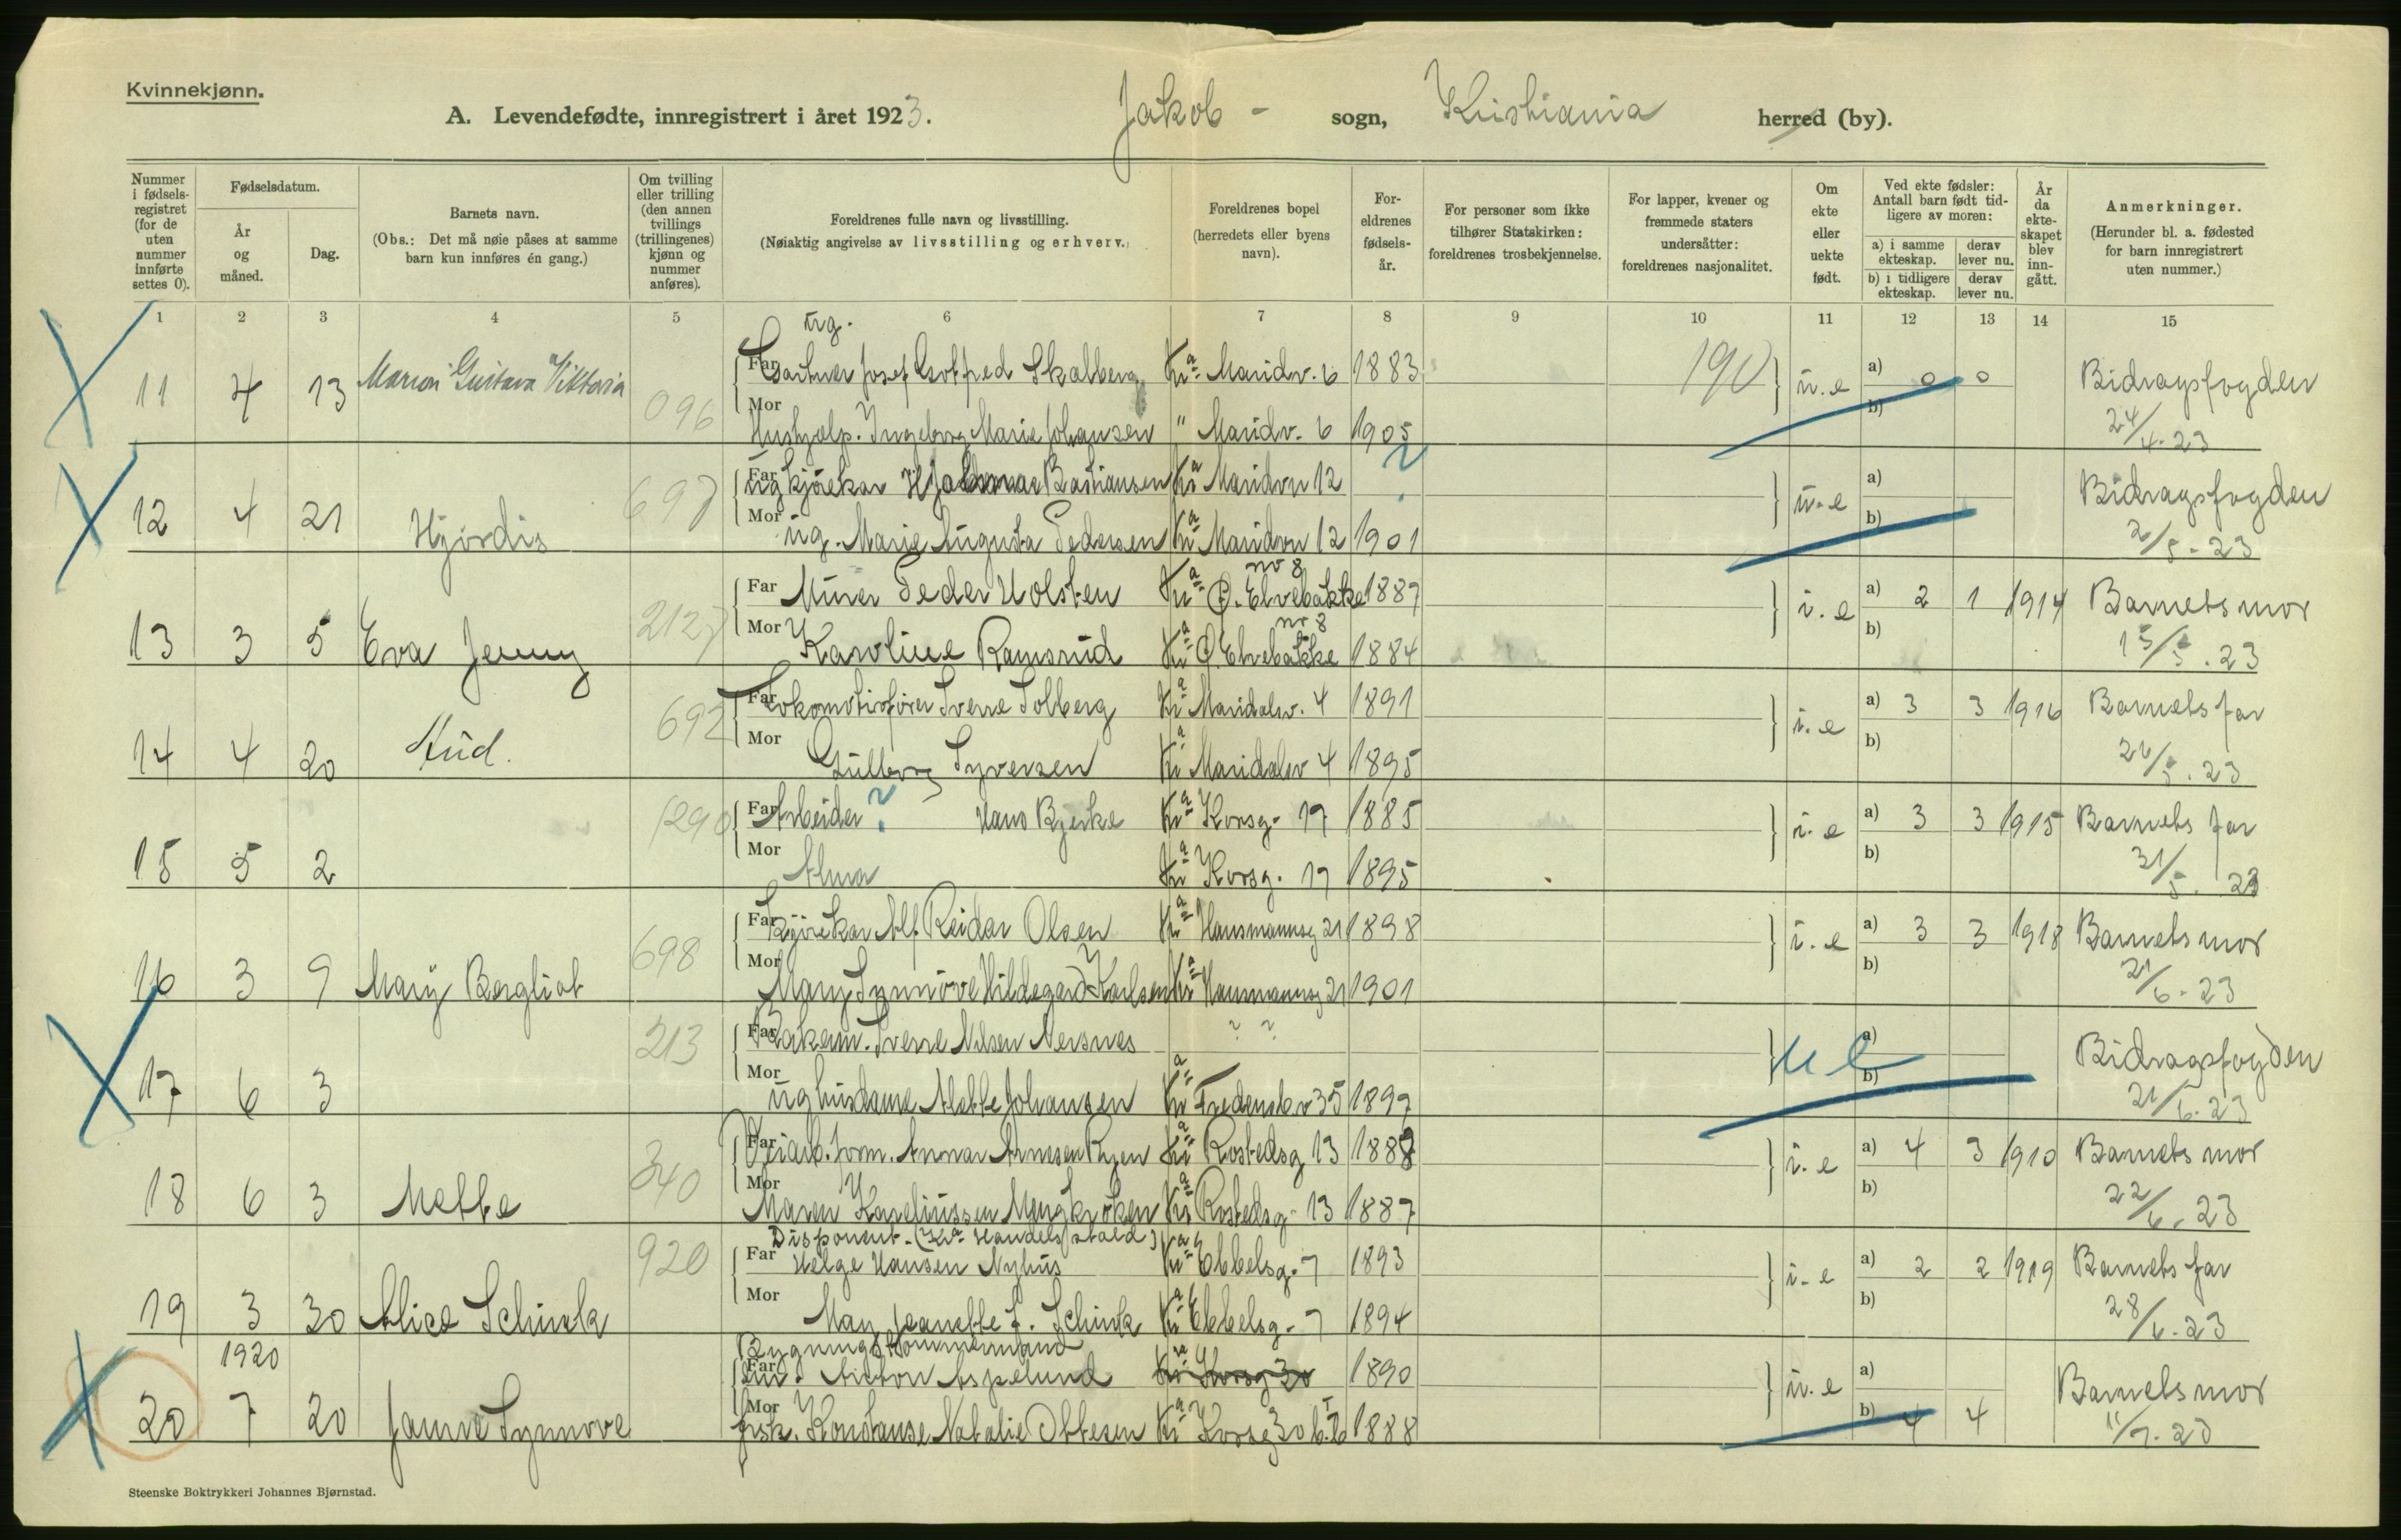 Kvinnekjønn.
A. Levendefødte, innregistrert i året 1923.
Jakob - sogn, Kristiania herred (by).
Nummer i fødselsregistret (for de uten nummer innførte settes 0).
Fødselsdatum.
År og måned.
Dag.
Barnets navn.
(Obs.: Det må nøie påses at samme barn kun innføres én gang.)
Om tvilling eller trilling (den annen tvillings (trillingenes) kjønn og nummer anføres).
Foreldrenes fulle navn og livsstilling.
(Nøiaktig angivelse av livsstilling og erhverv.)
Foreldrenes bopel (herredets eller byens navn).
Foreldrenes fødselsår.
For personer som ikke tilhører Statskirken: foreldrenes trosbekjennelse.
For lapper, kvener og fremmede staters undersåtter: foreldrenes nasjonalitet.
Om ekte eller uekte født.
Ved ekte fødsler: Antall barn født tidligere av moren:
a) i samme ekteskap. derav lever nu.
b) i tidligere ekteskap. derav lever nu.
År da ekteskapet blev inngått.
Anmerkninger.
(Herunder bl. a. fødested for barn innregistrert uten nummer.)
1 2 3 4 5 6 7 8 9 10 11 12 13 14 15
ug.
11 4 13 Marion Gustava Viktoria 096 Far Gartner Josef Gotfred Skalberg Kra Maridv. 6 1883 190 u.e a) 0 0 b) Bidragsfogden 24/4-23
Mor Hushjelp. Ingeborg Marie Johansen " Maridv. 6 1905
12 4 21 Hjørdis 697 Far ug kjørekar Hjalmar Bastiansen Kra Maridvn 12 ? u-e a) b) Bidragsfogden 2/5-23
Mor ug. Marie Augusta Pedersen Kra Maridvn 12 1901
13 3 5 Eva Jenny 2127 Far Murer Peder Holsten Kra Ø. Elvebakke nr 8 1887 i.e a) 2 1 1914 b) Barnets mor 15/5.23
Mor Karoline Ramsrud Kra Ø. Elvebakke nr 8 1884
14 4 20 Aud. 692 Far Lokomotivfører Sverre Solberg Kra Maridalsv. 4 1891 i.e a) 3 3 1916 b) Barnets far 26/5.23
Mor Gulborg Syversen Kra Maridalsv 4 1895
15 5 2 1290 Far Arbeider ? Hans Bjerke Kra Korsg. 17 1885 i.e a) 3 3 1915 b) Barnets far 31/5. 23
Mor Alma Kra Korsg. 17 1895
16 3 9 Mary Bergliot 698 Far Kjørekar Alf Reidar Olsen Kra Hausmannsg 21 1898 i.e a) 3 3 1918 b) Barnets mor 21/6-23
Mor Mary Synnøve Hildegard Karlsen Kra Hausmannsg 21 1901
17 6 3 213 Far Sverre Nilsen Nersnes ? ? u e a) b) Bidragsfogden 21/6.23
Mor ug husdame Alette Johansen Kra Fredensbv 35 1897
18 6 3 Mette 340 Far Arnesen Kra Rostedsg 13 1888 i.e a) 4 3 1910 b) Barnets mor 22/6.23
Mor Maren Kra Rostedsg. 13 1887
Disponent. (Kra Handelsstald)
19 3 30 Alice Schinck 920 Far Helge Hansen Nyhus Kra Ebbelsg. 7 1893 i-e a) 2 2 1919 b) Barnets far 28/6-23
Mor May Jeanette F. Schinck Kra Ebbelsg. 7 1894
Bygningstømmermand
1920
20 7 20 Synnove Far Anton Aspelund Kra Korsg 30 1890 u.e a) b) 4 4 Barnets mor 11/7.23
Mor Konstanse Natalie Ottesen Kra Korsg 30 b. I 1888
Steenske Boktrykkeri Johannes Bjørnstad.